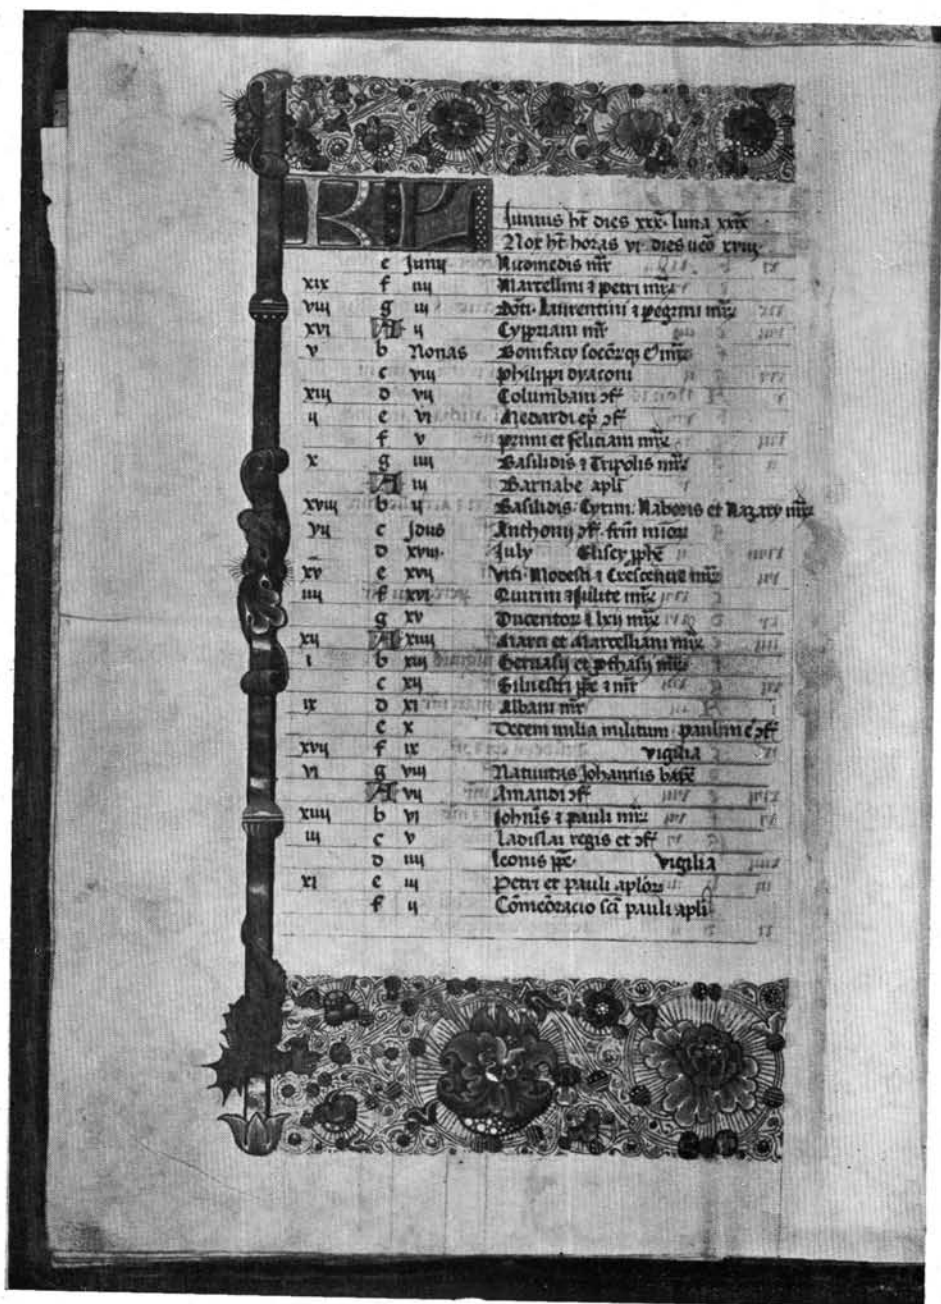 KL
Junius ht dies xxx. luna xxix.
Nox ht horas vi. dies ueo xviij.
e Junij Nicomedis mr
xix f iiij Marcellini ⁊ petri mrꝝ
viij g iij Laurentini ⁊ pegrini mrꝝ
xvi A ij Cypriani mr
v b Nonas Bonifacij socorqꝫ ei mrꝝ
c viij philippi dyaconi
xiij d vij Columbani ↄf
ij e vi Medardi ep ↄf
f v primi et feliciani mrꝝ
x g iiij Basilidis ⁊ Tripolis mrꝝ
A iij Barnabe apli
xviij b ij Basilidis. Cyrini. Naboris et Nazarij mrꝝ
vij c Idus Anthonij ↄf. frm mior
d xviij. July Elisey pphe
xv e xvij viti. Modesti ⁊ Crescencie mrꝝ
iiij f xvi Quirini ⁊ Julite mrꝝ
g xv Ducentor ⁊ lxij mrꝝ
xij A xiiij Marci et Marcelliani mrꝝ
i b xiij Geruasij et pthasij mrꝝ
c xij Siluestri ppe ⁊ mr
ix d xi Albani mr
e x Decem milia militum. paulini e ↄf
xvij f ix vigilia
vi g viij Natiuitas Johannis bapte
A vij Amandi ↄf
xiiij b vi Johnis ⁊ pauli mrꝝ
iij c v Ladislai regis et ↄf
d iiij leonis ppe. vigilia
xi e iij Petri et pauli aplorꝝ
f ij Comeoracio sci pauli apli